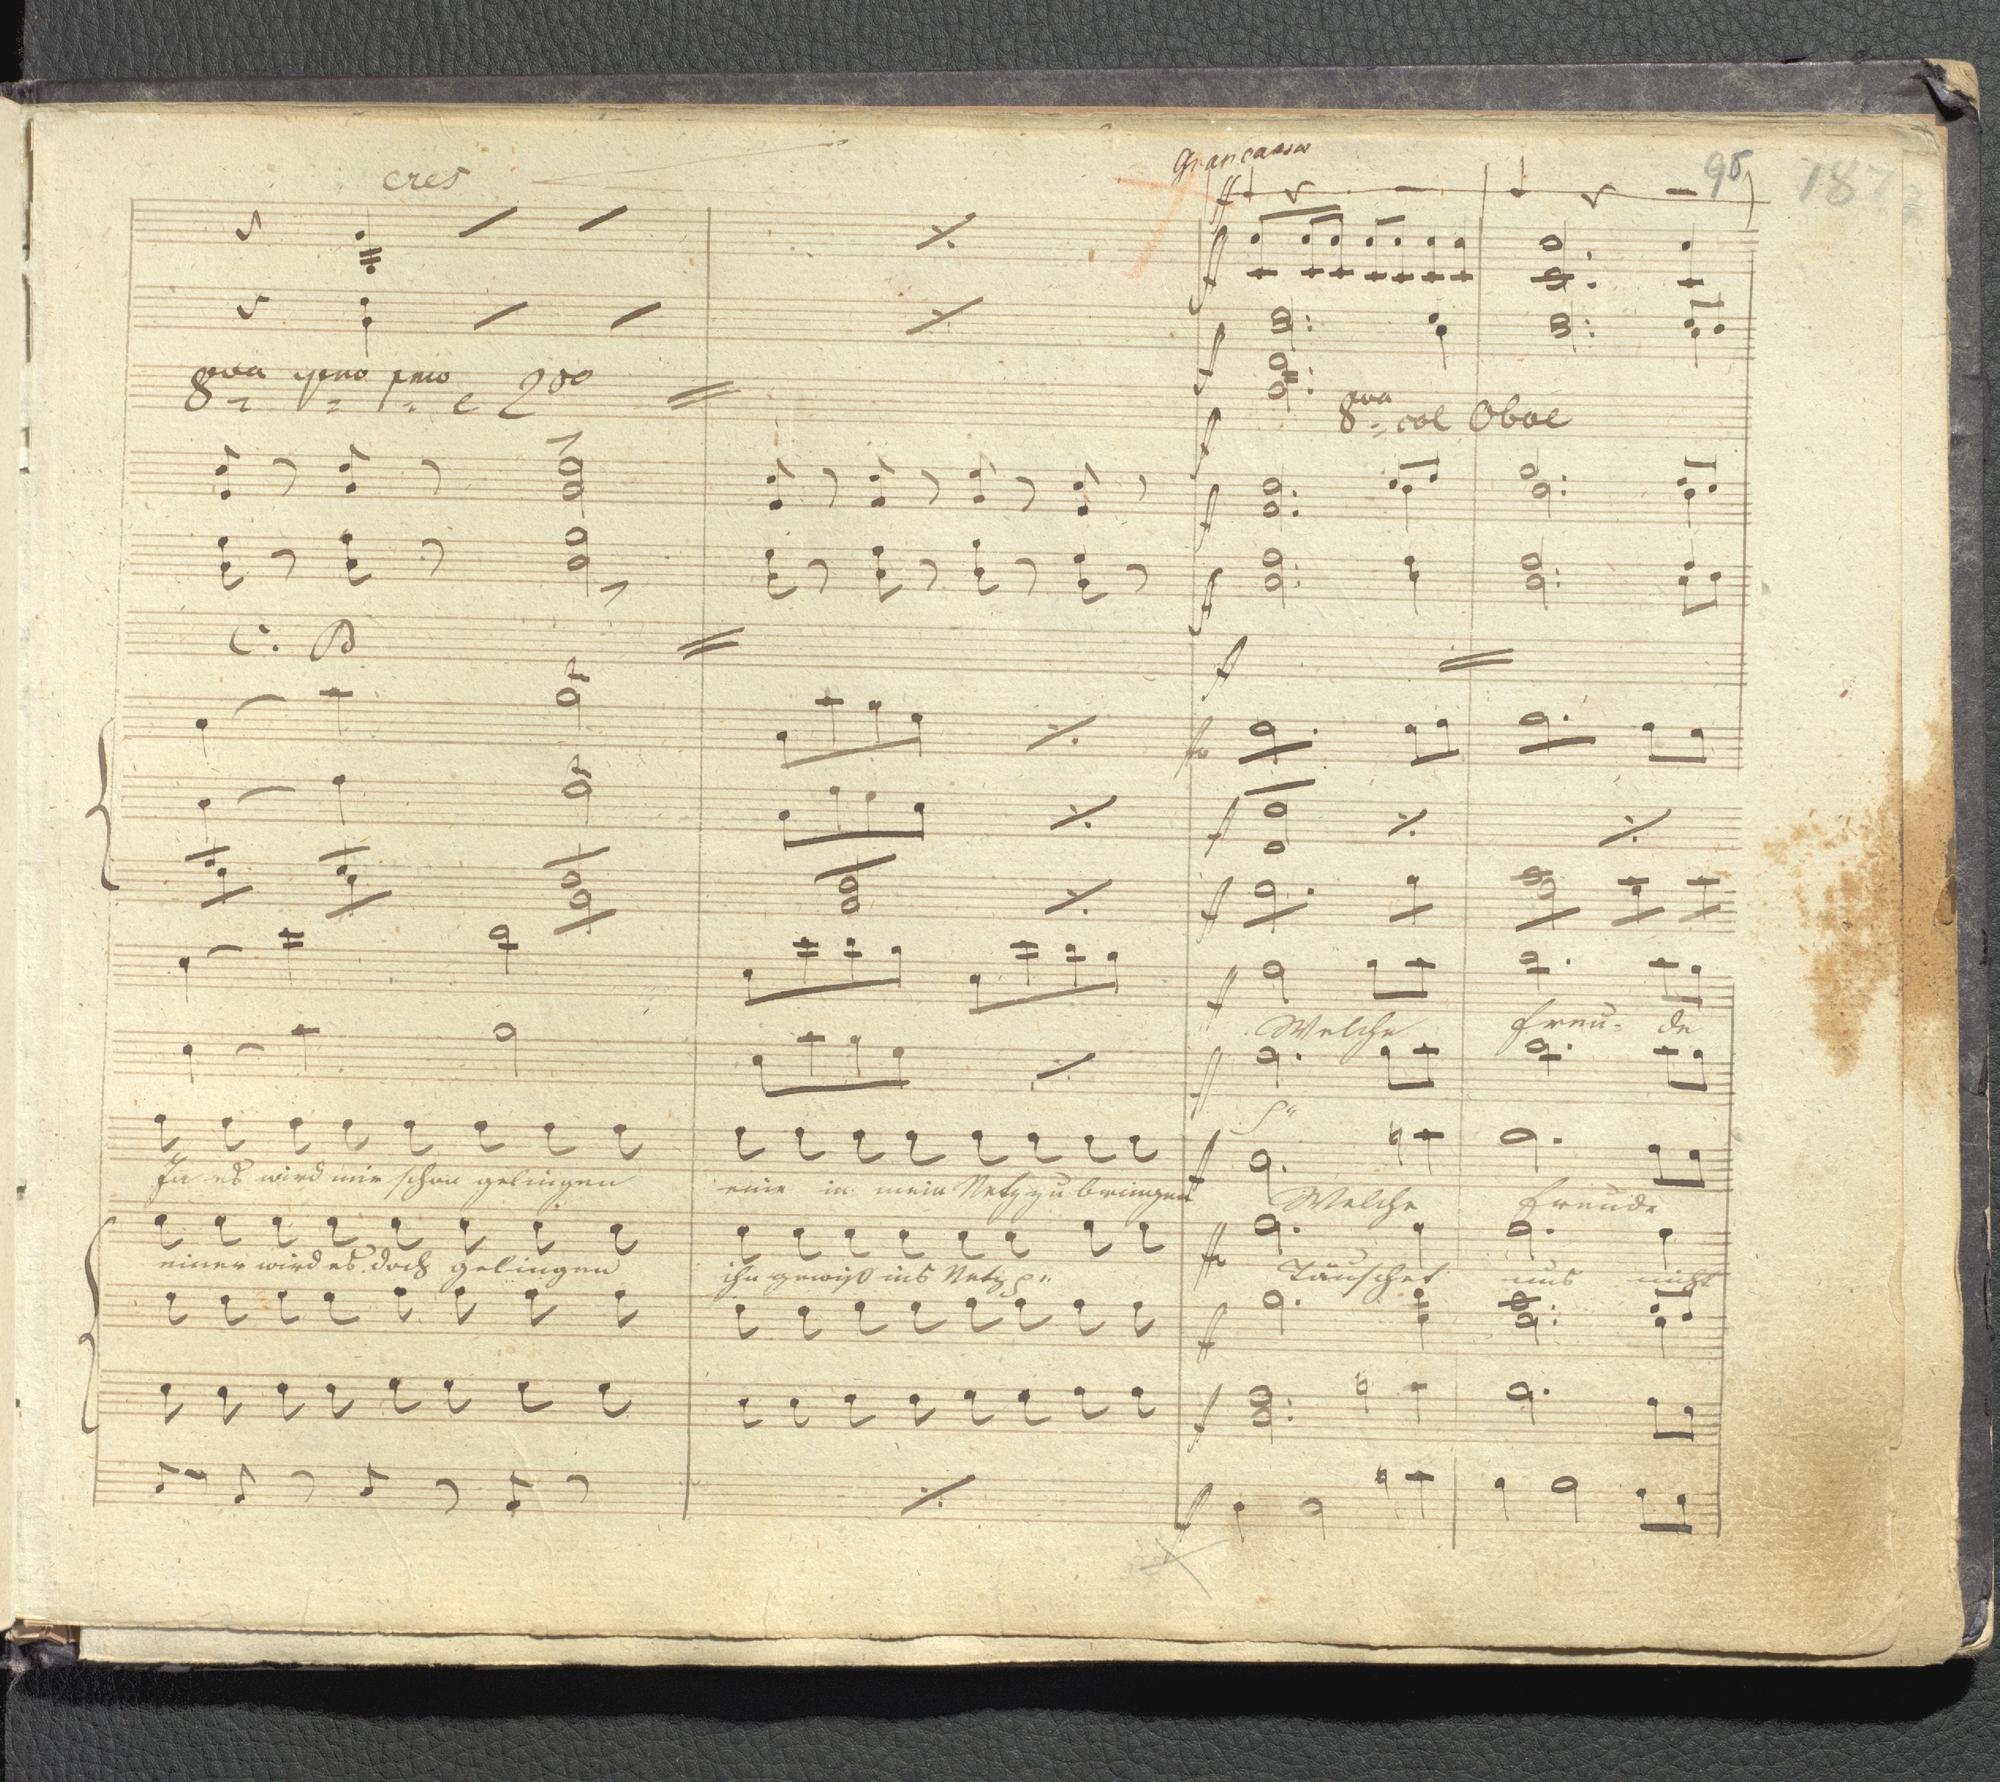 Grancassa
98
187
cres
ff
8va pmo e 2do
8va col Oboe
C. B
Welche Freu- de
Ja es wird mir schon gelingen eine in mein Netz zu bringen Welche Freude
einer wird es doch gelingen ihn gewiß ins Netz Täuschet uns nicht